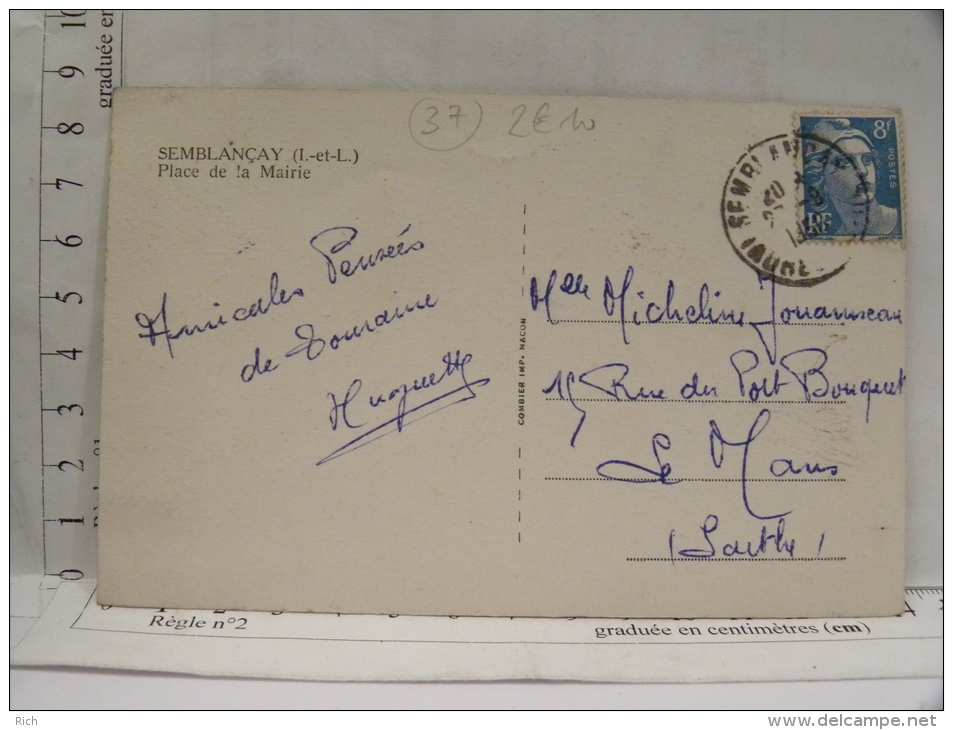 10
9
8
7
6
5
4
3
2
1
0
graduée en
(37) 2€10
SEMBLANÇAY (I.-et-L.)
Place de la Mairie
8f
POSTES
Amicales Pensées
de Touraine
Huguette
COMBIER IMP. MACON
Melle Micheline Jouanneau
15 Rue du Port Bouquet
Le Mans
(Sarthe)
Règle n°2
graduée en centimètres (cm)
Rich
delcampe.net